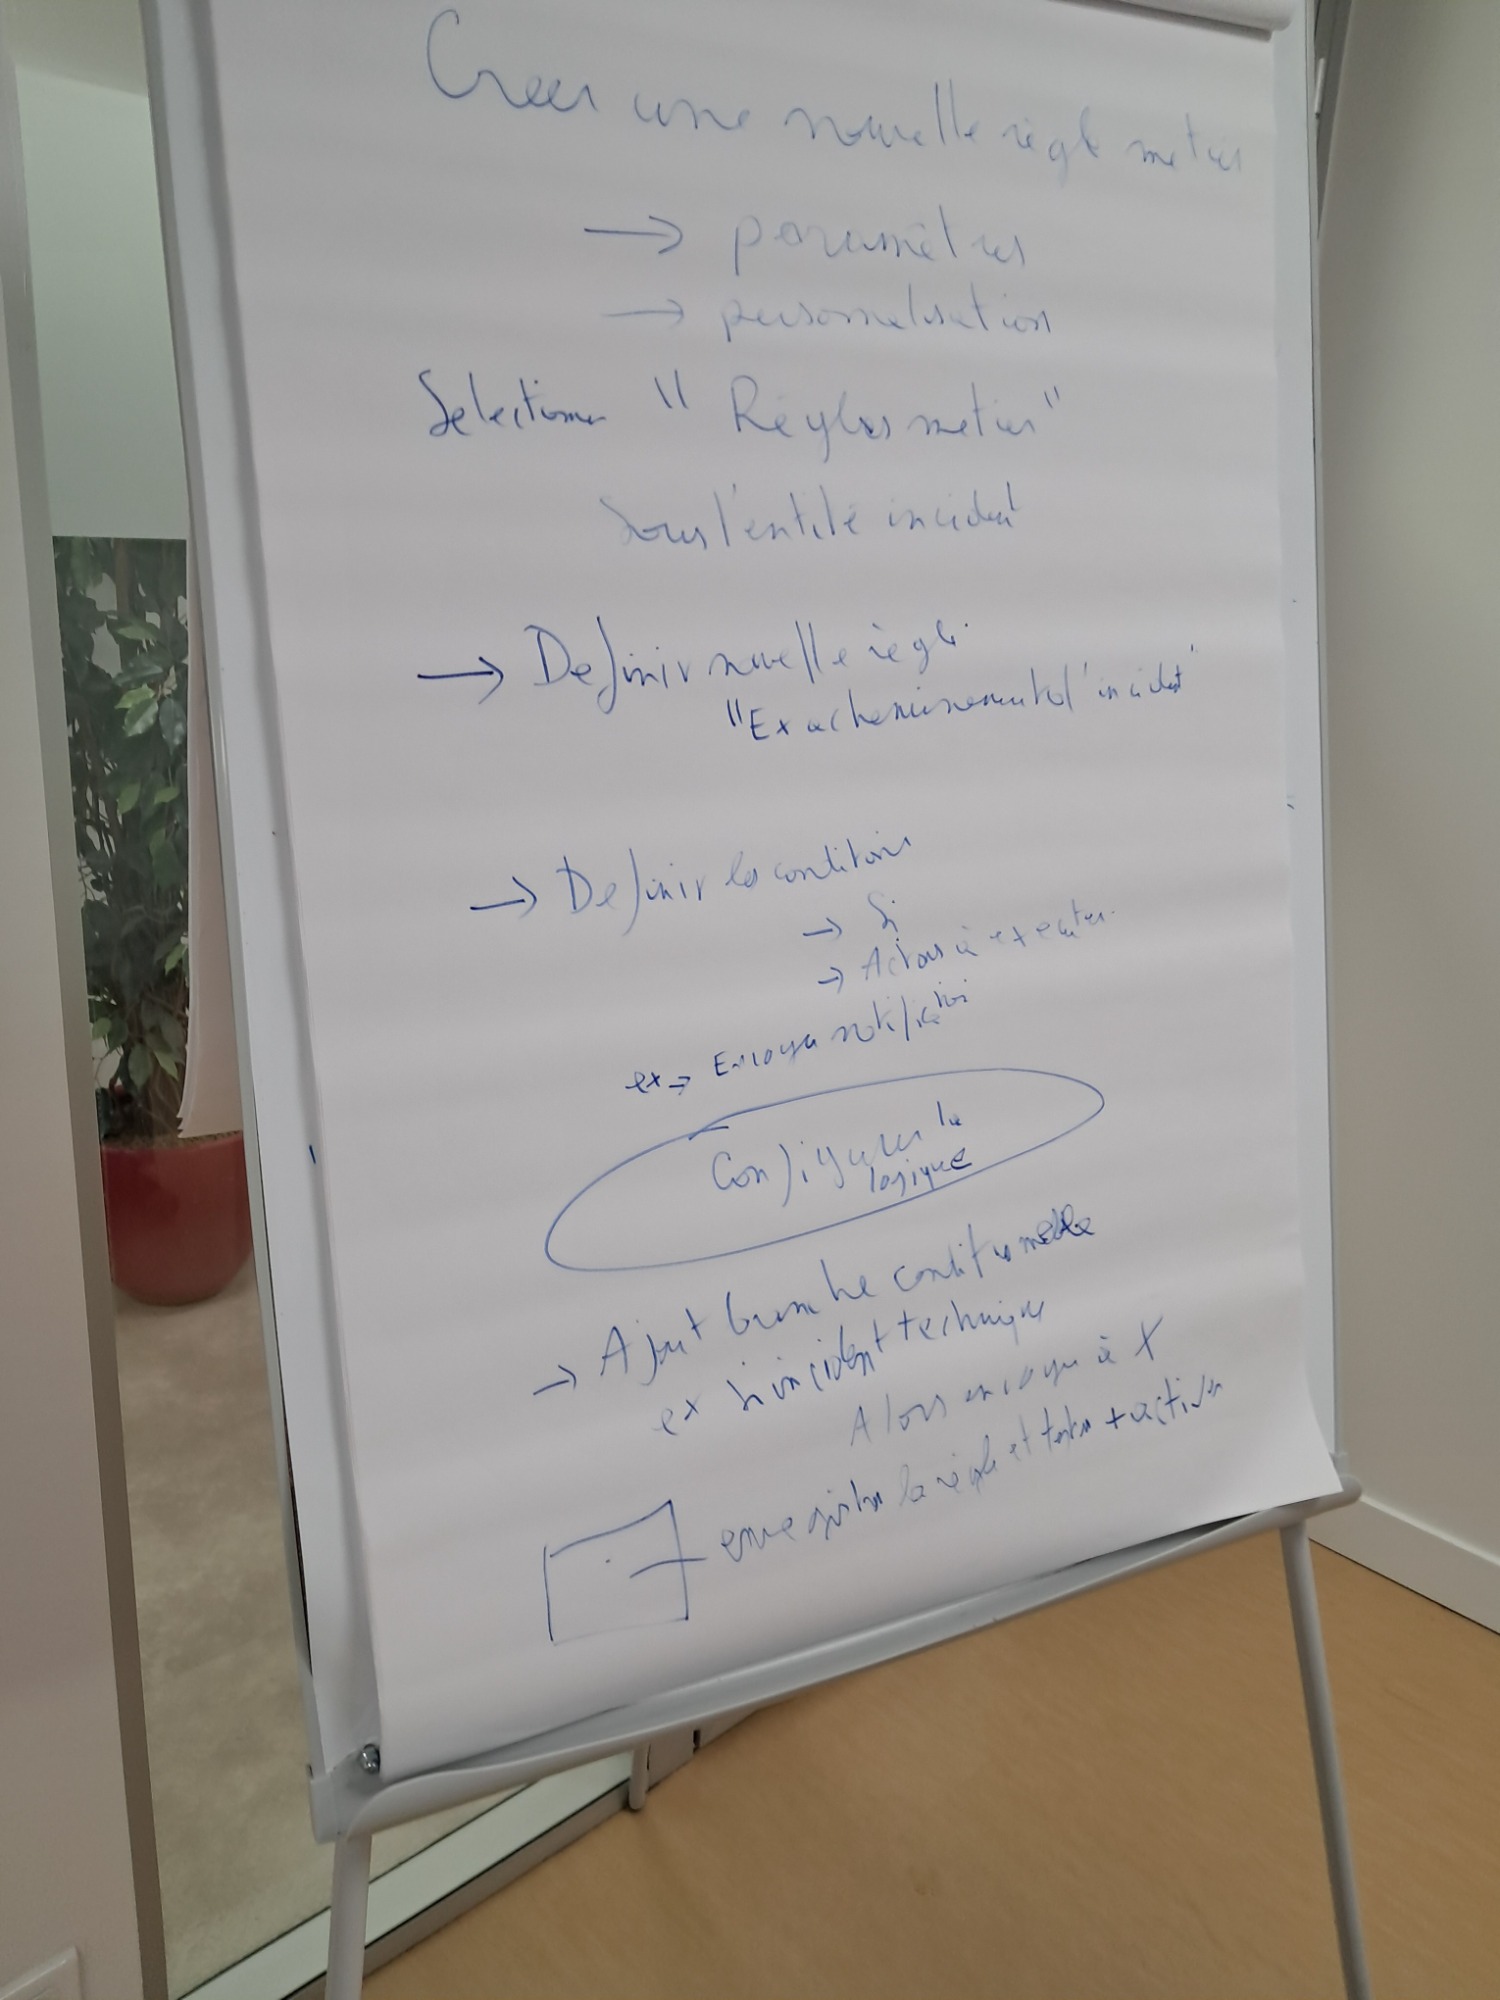 Creer une nouvelle règle metier
→ paramètres
→ personnalisation
Selectionner "Règles metier"
Sous l'entité incident
→ Definir nouvelle règle.
"Ex acheminement d'incident"
→ Definir les conditions
→ Si
→ Actions à executer.
ex → Envoyer notification
Configurer la
logique
→ Ajout branche conditionnelle
ex Si incident technique
Alors envoyer à X
enregistrer la règle et tester + activer